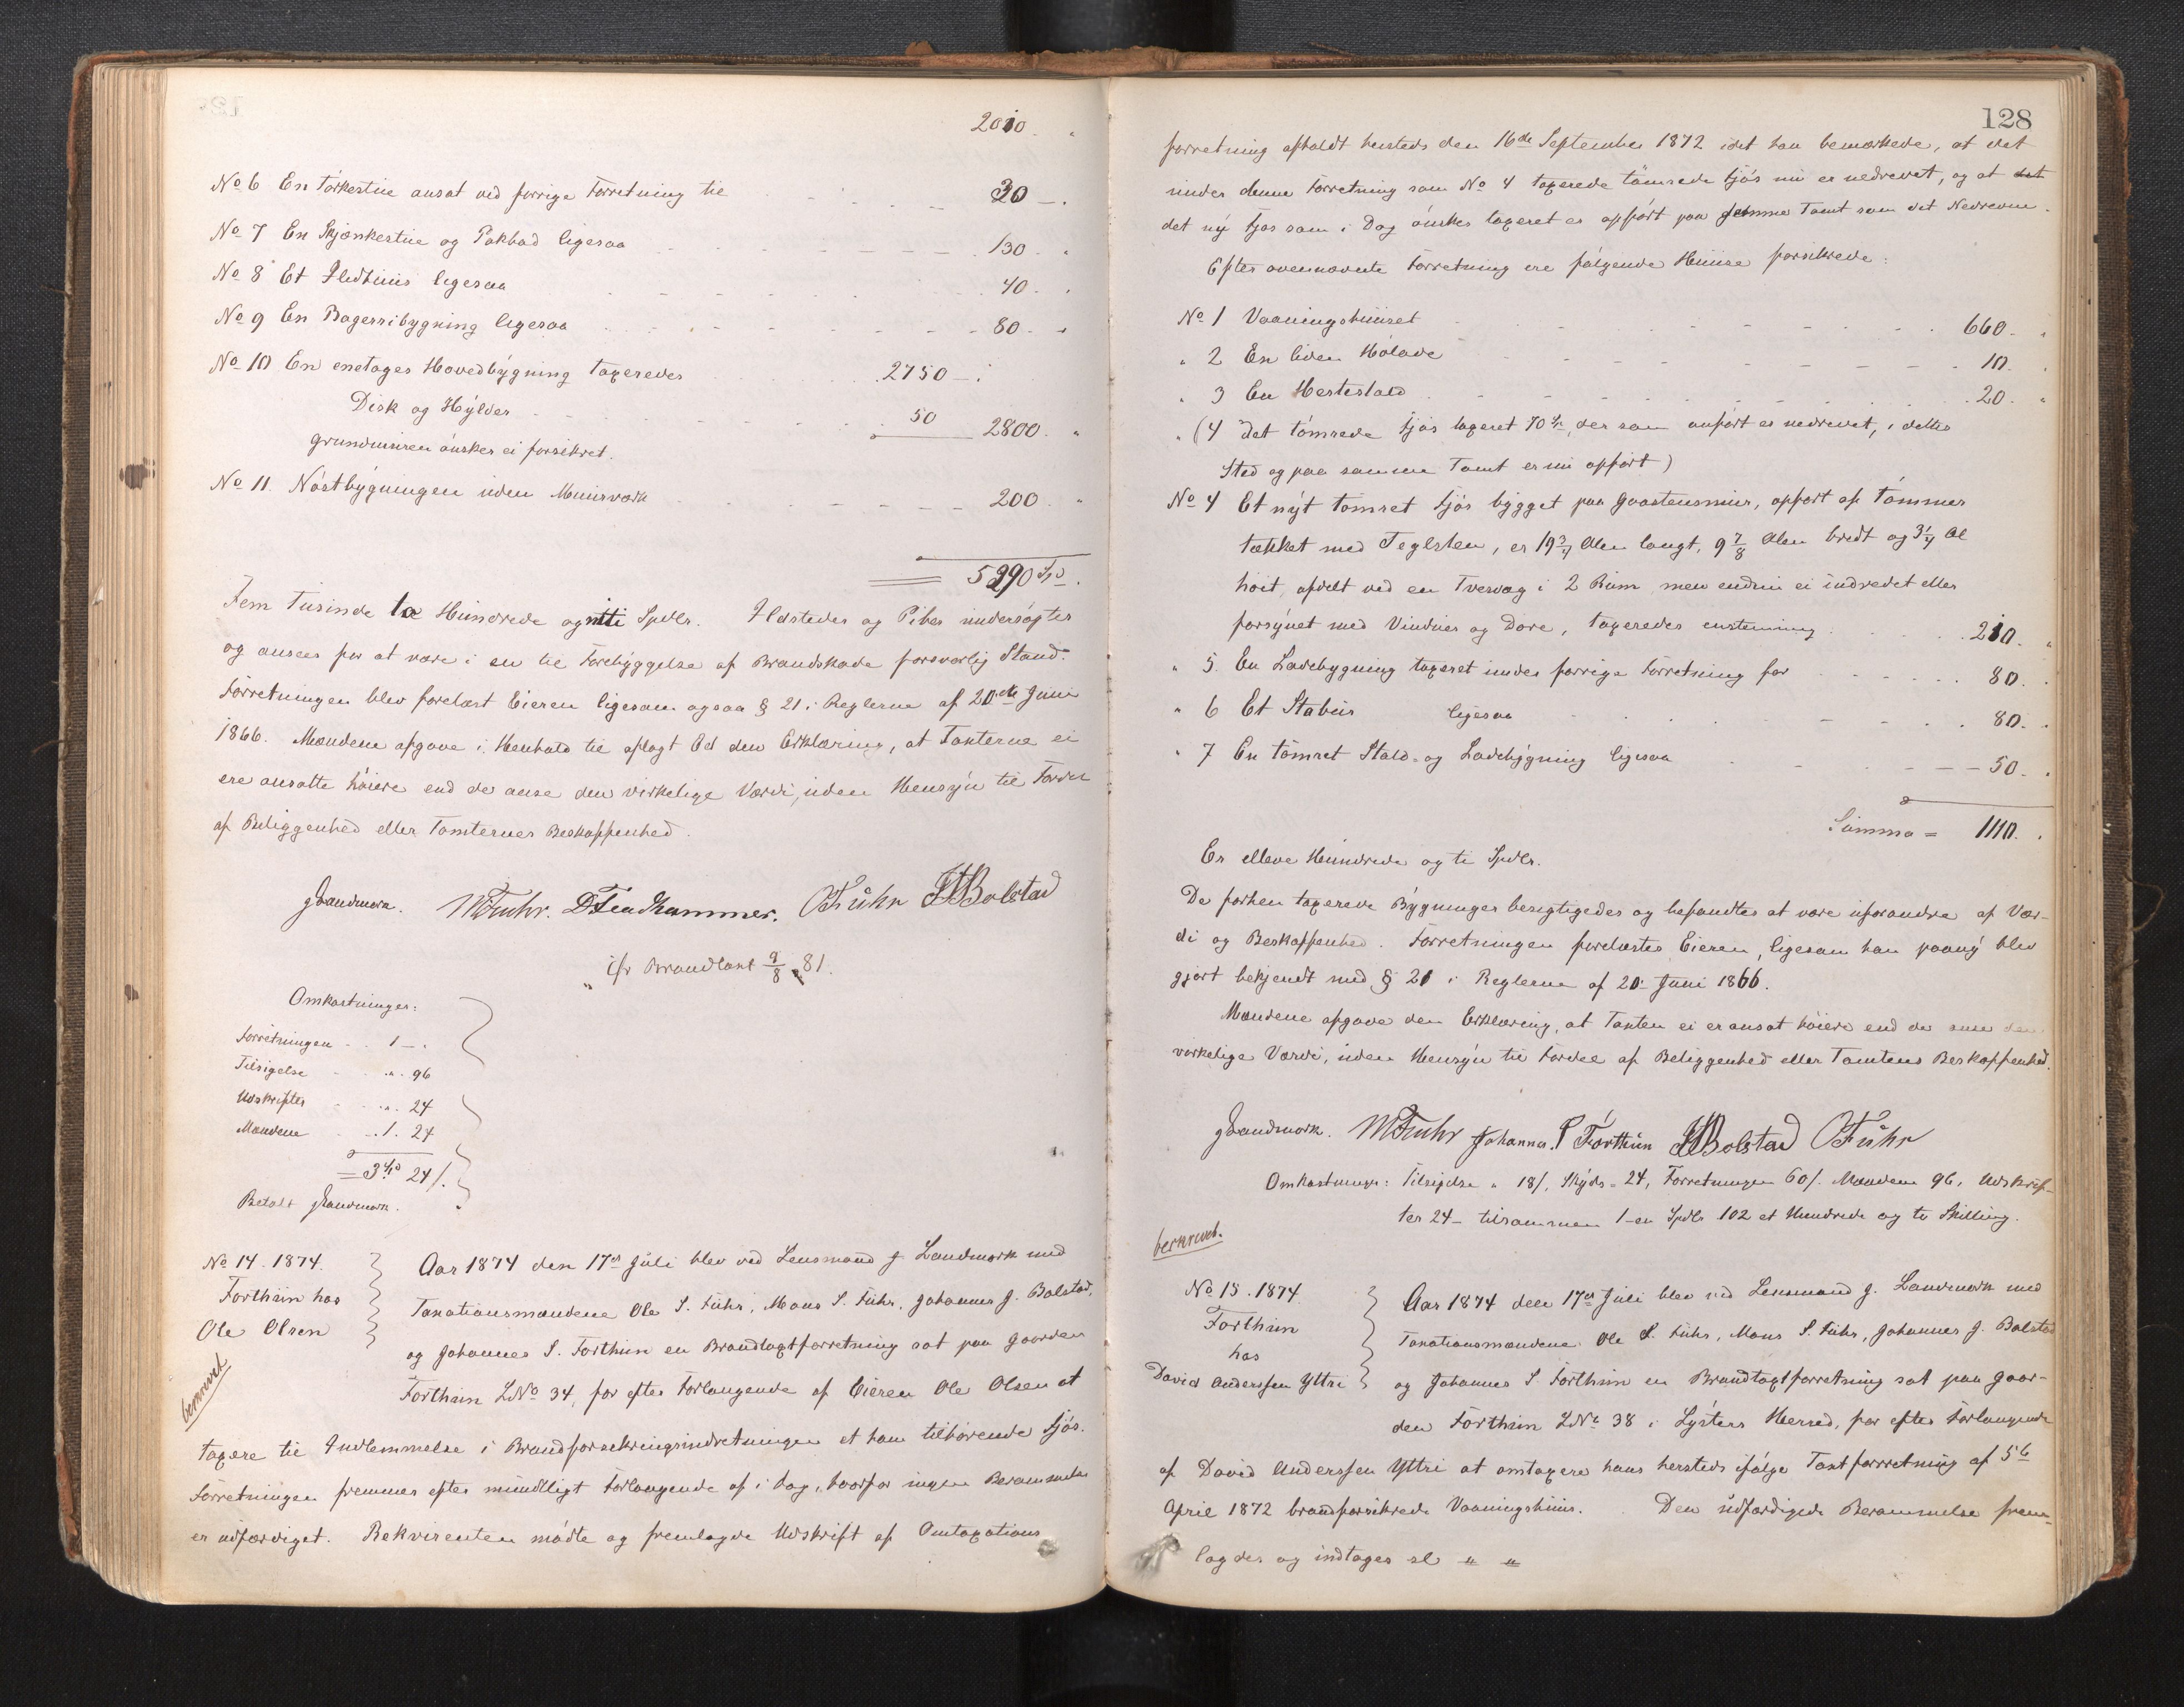 2010 "
No 6 En Tørkestue ansat ved forrige Forretning til 30 - .
No 7 En Skjænkestue og Pakbod ligesaa 130 "
No 8 Et Ildhuus ligesaa 40 - "
No 9 En Bageribygning ligesaa 80 - "
No 10 En enetages Hovedbygning taxeredes 2750 - .
Disk og Hylder 50 2800 "
Grundmuren ønskes ei forsikret.
No 11. Nøstbygningen uden Muurværk 200 "
5290 Spd.
Fem Tusinde to Hundrede og nitti Spdlr. Ildsteder og Piber undersøgtes
og ansees for at være i en til Forebyggelse af Brandskade forsvarlig Stand.
Forretningen blev forelæst Eieren ligesom ogsaa § 21 i Reglerne af 20de Juni
1866. Mændene afgave i Henhold til aflagt Ed den Erklæring, at Taxterne ei
ere ansatte høiere end de anse den virkelige Værdi, uden Hensyn til Fordel
af Beliggenhed eller Tomternes Beskaffenhed.
J Landmark. M Fuhr. D Lindhammer. O Fuhr JJBolstad
jfr Brandtaxt 9/8 81.
Omkostninger:
Forretningen 1 - .
Tilsigelse " 96
Udskrifter " 24
Mændene 1. 24
= 3 Spd 24 /.
Betalt J Landmark.
No 14. 1874.
Forthun hos
Ole Olsen
beskrevet
Aar 1874 den 17de Juli blev ved Lensmand J. Landmark med
Taxationsmændene Ole S. Fuhr, Mons S. Fuhr, Johannes J. Bolstad,
og Johannes S. Forthun en Brandtaxtforretning sat paa Gaarden
Forthun LNo 34, for efter Forlangende af Eieren Ole Olsen at
taxere til Indlemmelse i Brandforsikringsindretningen et ham tilhørende Fjøs.
Forretningen fremmes efter mundtligt Forlangende af i Dag, hvorfor ingen Berammelse
er udfærdiget. Rekvirenten mødte og fremlagde Udskrift af Omtaxations
128
forretning afholdt hersteds den 16de September 1872 idet han bemærkede, at det
under denne Forretning som No 4 taxerede tømrede Fjøs nu er nedrevet, og at det
det ny Fjøs som i Dag ønskes taxeret er opført paa samme Tomt som det Nedrevne.
Efter ovennævnte Forretning ere følgende Huuse forsikrede:
No 1 Vaaningshuuset 660 - "
" 2 En liden Hølade 10. "
" 3 En Hestestald 20. "
" (4 det tømrede Fjøs taxeret 70 Spd, der som anført er nedrevet, i dettes
Sted og paa samme Tomt er nu opført)
No 4 Et nyt tømret Fjøs bygget paa Graastensmuur, opført af Tømmer
tækket med Teglsten, er 19 3/4 Alen langt, 9 7/8 Alen bredt og 3 1/4 Al
høit, afdelt ved en Tvervæg i 2 Rum, men endnu ei indredet eller
forsynet med Vinduer og Døre, taxeredes enstemmig 210. "
" 5. En Ladebygning taxeret under forrige Forretning for 80. "
" 6 Et Stabuur ligesaa 80. "
" 7 En tømret Stald- og Ladebygning ligesaa 50. "
Summa = 1110. "
Er elleve Hundrede og ti Spdlr.
De forhen taxerede Bygninger besigtigedes og befandtes at være uforandre af Vær-
di og Beskaffenhed. Forretningen forelæstes Eieren, ligesom han paany blev
gjort bekjendt med § 21 i Reglerne af 20 Juni 1866.
Mændene afgave den Erklæring, at Taxten ei er ansat høiere end de anse den
virkelige Værdi, uden Hensyn til Fordel af Beliggenhed eller Tomtens Beskaffenhed.
J Landmark. M Fuhr Johannes S Forthun JJBolstad O Fuhr
Omkostninger: Tilsigelse " 18/. Skyds " 24, Forretningen 60/. Mændene 96, Udskrif-
ter 24 - tilsammen 1 - en Spdlr 102 et Hundrede og to Skilling.
beskrevet.
No 15. 1874
Forthun
hos
David Anderssen Yttri
Aar 1874 den 17de Juli blev ved Lensmand J. Landmark med
Taxationsmændene Ole S. Fuhr, Mons S. Fuhr, Johannes J. Bolstad
og Johannes S. Forthun en Brandtaxtforretning sat paa Gaar-
den Forthun LNo 38 i Lysters Herred, for efter Forlangende
af David Anderssen Yttri at omtaxere hans hersteds ifølge Taxtforrretning af 5te
April 1872 brandforsikrede Vaaningshuus. Den udfærdigede Berammelse frem-
lagdes og indtages sl " "